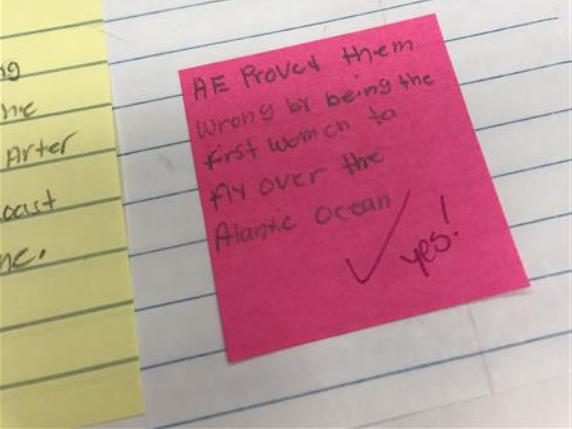 ng
he
Arter
oast
ne.
AE Proved them
wrong by being the
first women to
fly over the
Alantic Ocean
✓ yes!